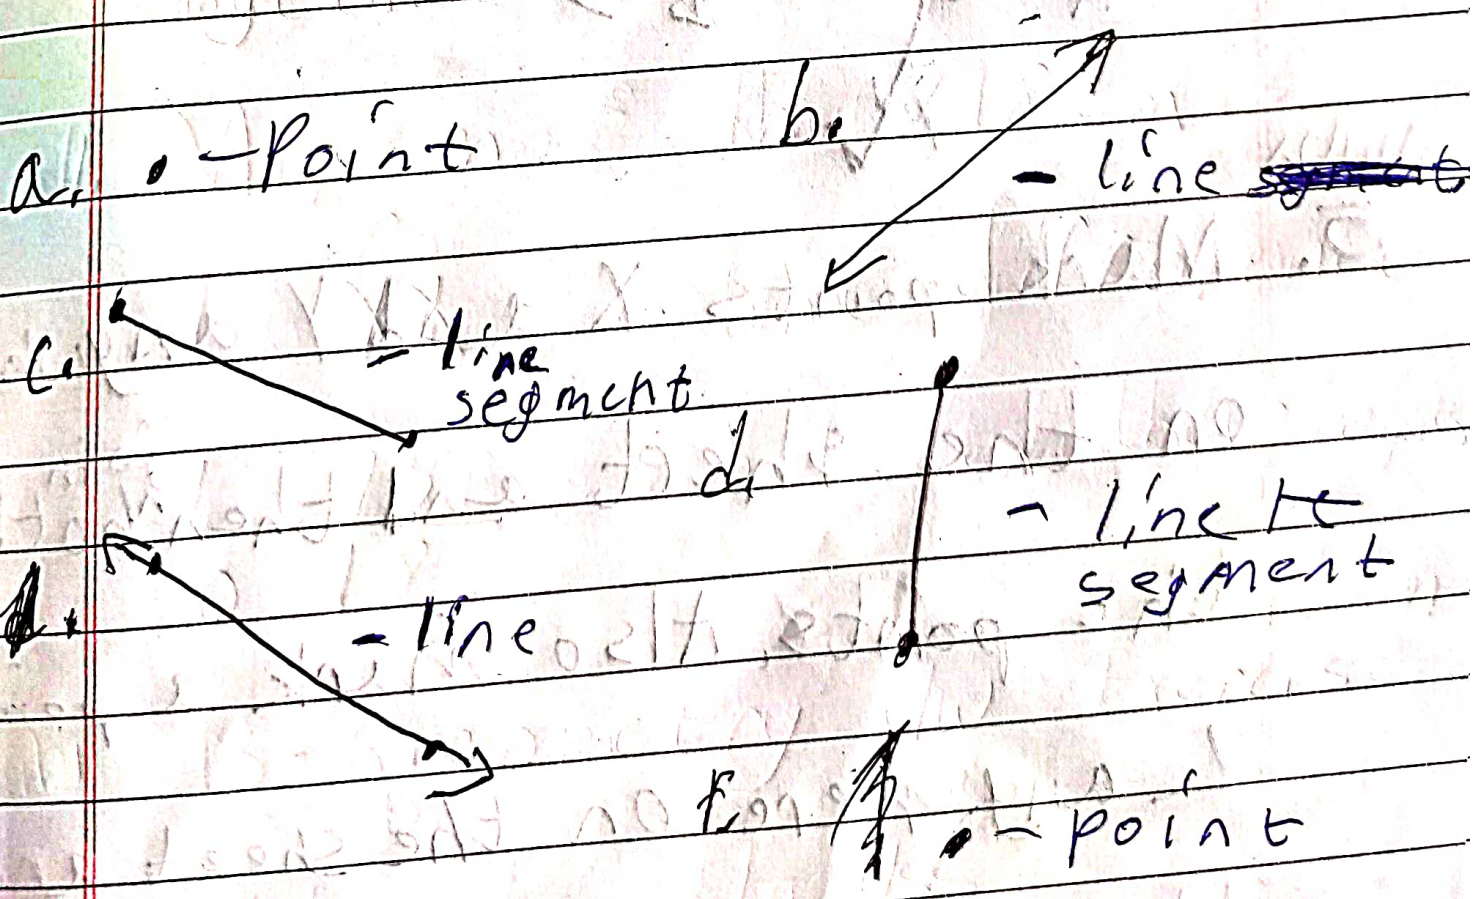 a. - Point
b. - line
c. - line
segment
d. - line
segment
d. - line
f. - point